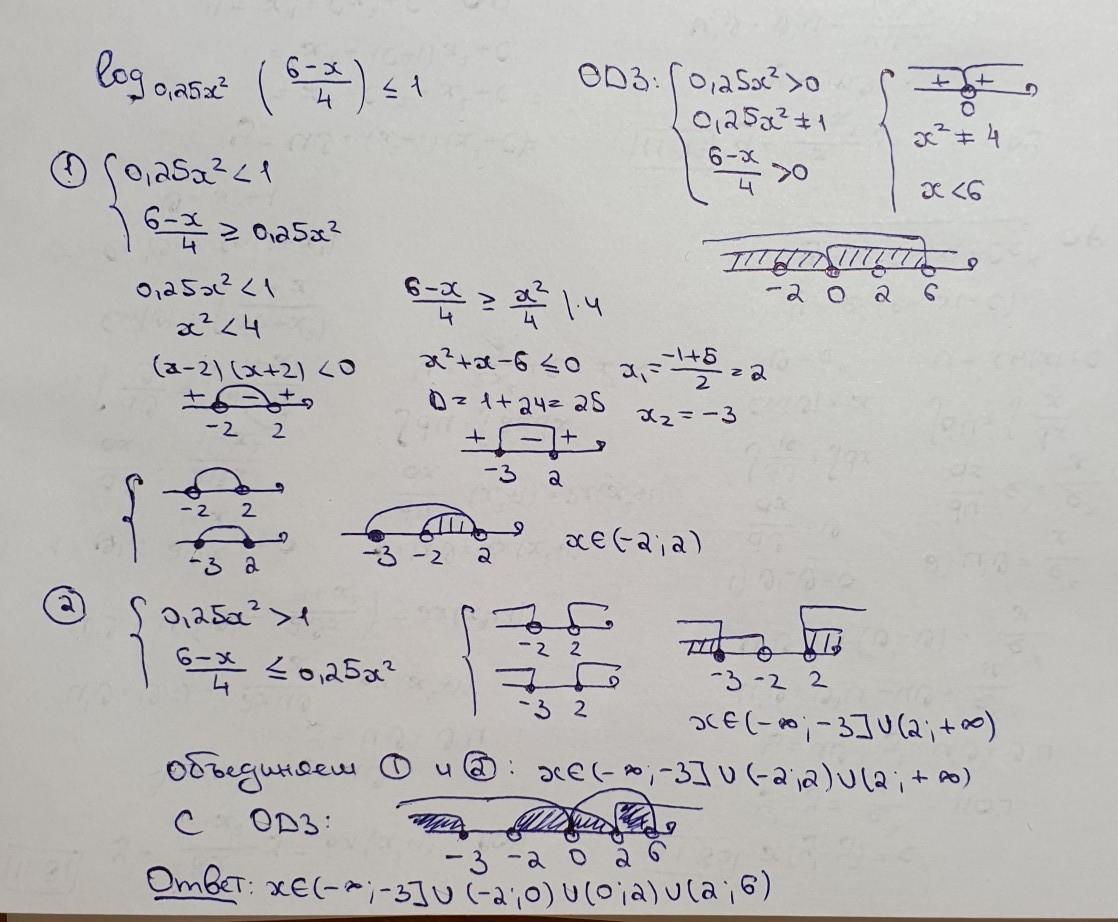 log₀,₂₅ₓ² ((6-x)/4) ≤ 1
ОДЗ: { 0,25x² > 0
0,25x² ≠ 1
(6-x)/4 > 0
{ + + 0
x² ≠ 4
x < 6
-2 0 2 6
① { 0,25x² < 1
(6-x)/4 ≥ 0,25x²
0,25x² < 1
x² < 4
(x-2)(x+2) < 0
+ - +
-2 2
(6-x)/4 ≥ x²/4 |·4
x²+x-6 ≤ 0
D = 1+24 = 25
x₁ = (-1+5)/2 = 2
x₂ = -3
+ - +
-3 2
{ -2 2
-3 2
-3 -2 2
x∈(-2;2)
② { 0,25x² > 1
(6-x)/4 ≤ 0,25x²
{ -2 2
-3 2
-3 -2 2
x∈(-∞;-3]∪(2;+∞)
Объединяем ① и ②: x∈(-∞;-3]∪(-2;2)∪(2;+∞)
С ОДЗ:
-3 -2 0 2 6
Ответ: x∈(-∞;-3]∪(-2;0)∪(0;2)∪(2;6)